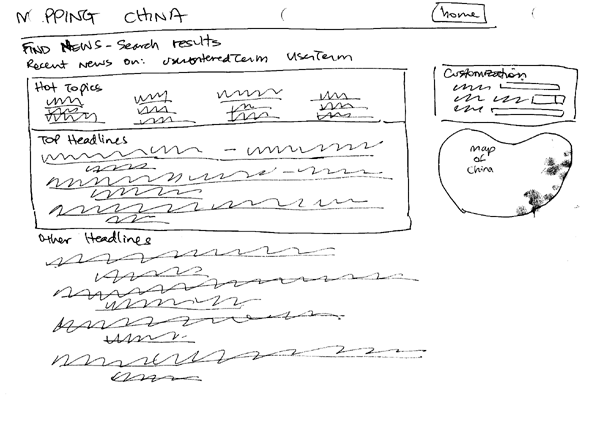 MAPPING CHINA
home
FIND NEWS - Search results
Recent news on: userenteredTerm UserTerm
Hot Topics
Customization
TOP Headlines
Map of China
Other Headlines